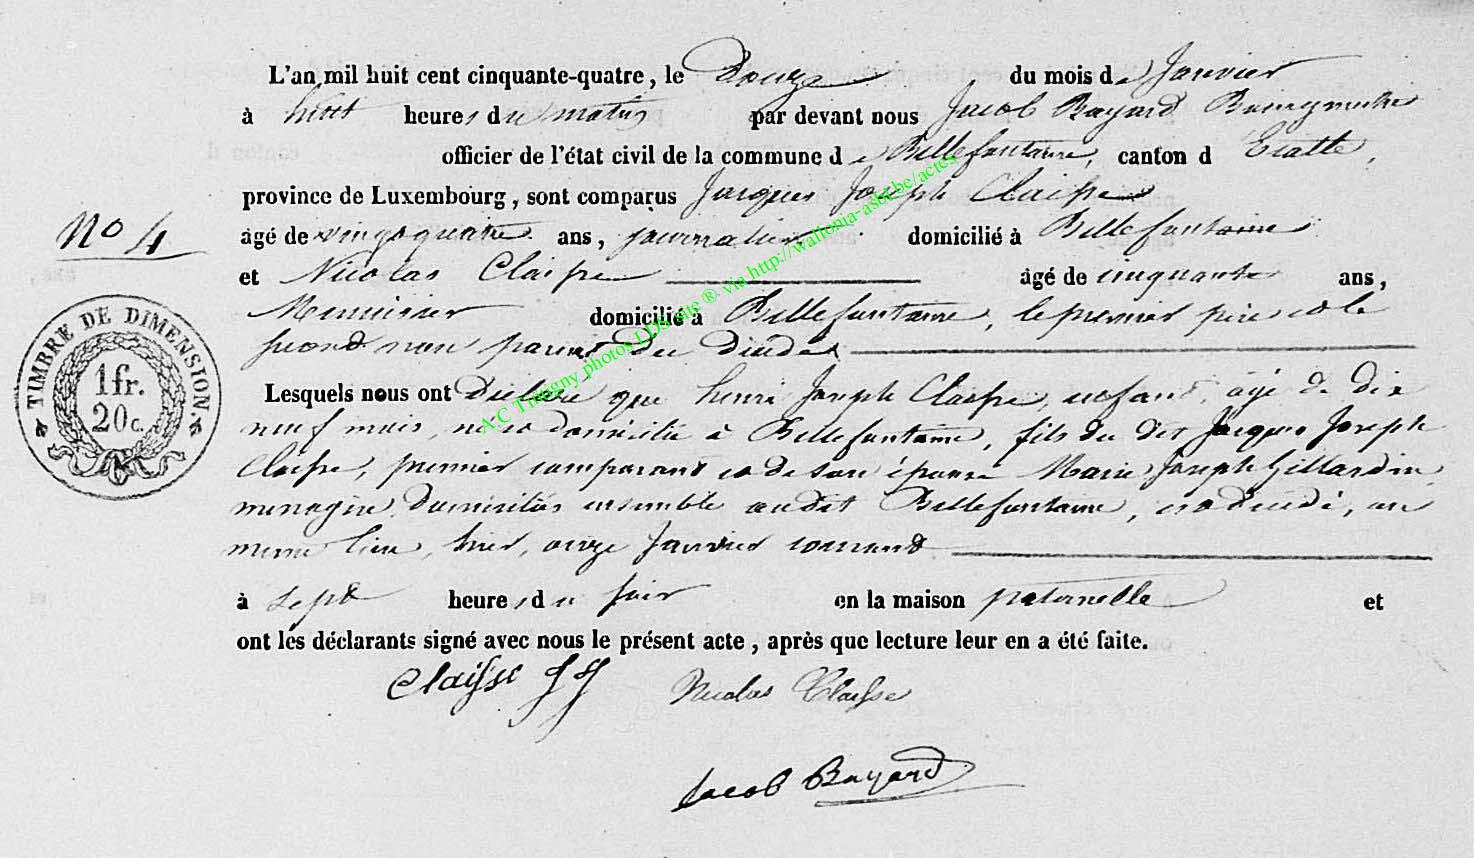 L'an mil huit cent cinquante-quatre, le Douze du mois de Janvier
à huit heures du matin par devant nous Jacob Bayard Bourgmestre
officier de l'état civil de la commune de Bellefontaine, canton d'Etalle,
province de Luxembourg, sont comparus Jacques Joseph Claisse
N° 4
âgé de vingt quatre ans, journalier domicilié à Bellefontaine
et Nicolas Claisse âgé de cinquante ans,
Menuisier domicilié à Bellefontaine, le premier père et le
second non parent du décédé
TIMBRE DE DIMENSION.
1 fr.
20 c.
Lesquels nous ont Déclaré que henri Joseph Claisse, enfant, âgé de dix
neuf mois, né et domicilié à Bellefontaine, fils du dit Jacques Joseph
Claisse, premier comparant et de son épouse Marie Joseph Gillardin
menagère, domiciliés ensemble audit Bellefontaine, est décédé, au
même lieu, hier, onze Janvier courant
à sept heures du soir en la maison paternelle et
ont les déclarants signé avec nous le présent acte, après que lecture leur en a été faite.
Claisse J J
Nicolas Claisse
Jacob Bayard
A.C Tintigny photos LDS site ® via http://wallonia-asbl.be/actes